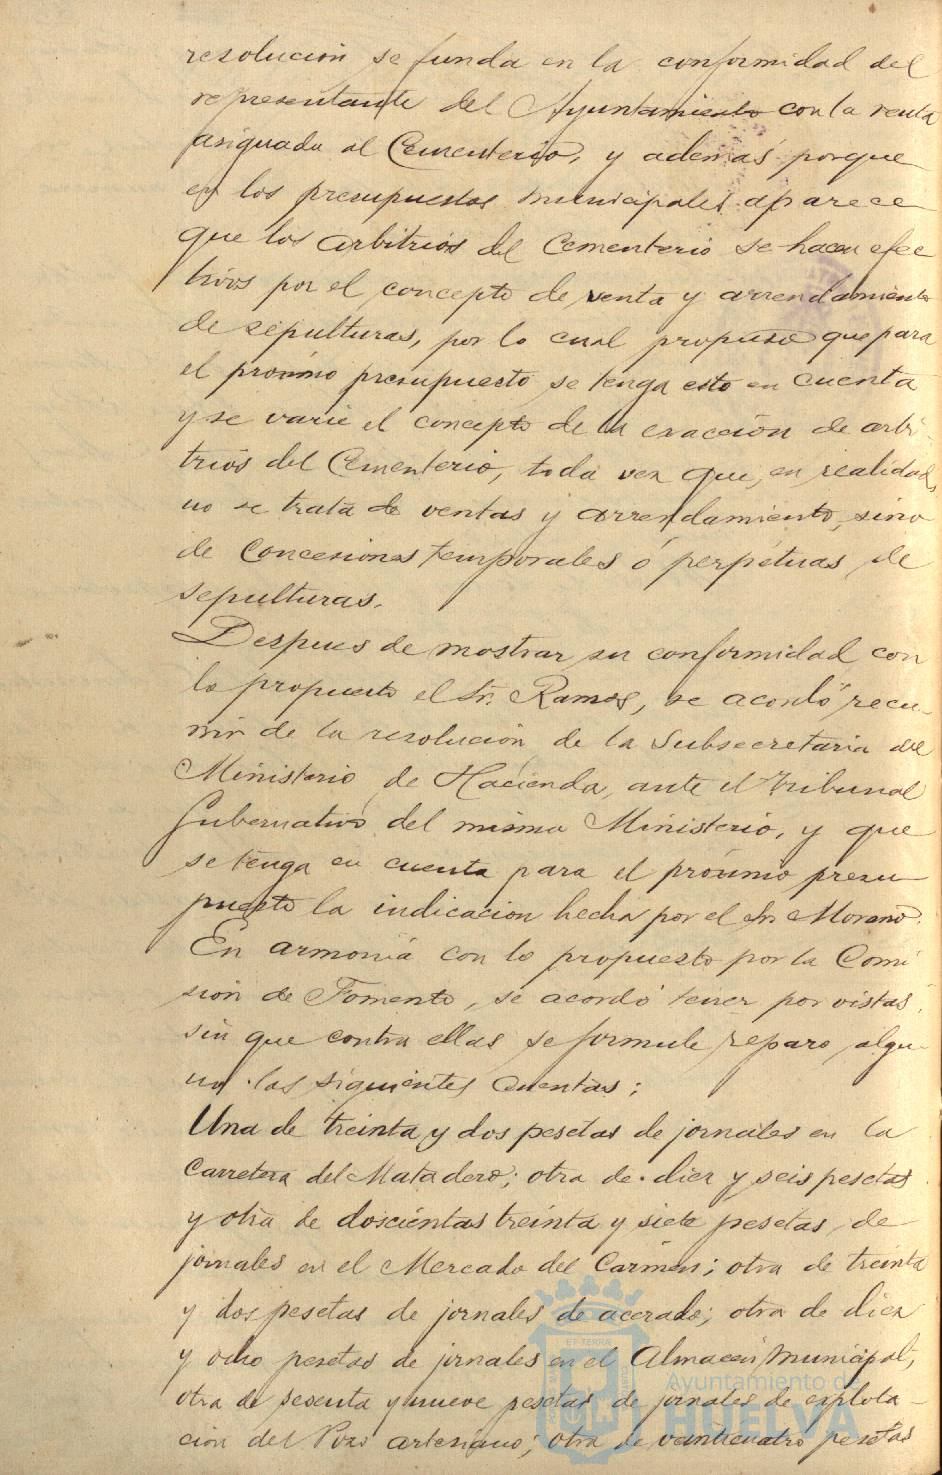 resolución se funda en la conformidad del
representante del Ayuntamiento con la renta
asignada al Cementerio, y además porque
en los presupuestos municipales aparece
que los arbitrios del Cementerio se hacen efec
tivos por el concepto de venta y arrendamiento
de sepulturas, por lo cual propuso que para
el próximo presupuesto se tenga esto en cuenta
y se varie el concepto de la exacción de arbi-
trios del Cementerio, toda vez que, en realidad,
no se trata de ventas y arrendamiento, sino
de Concesiones temporales ó perpétuas de
sepulturas.
Despues de mostrar su conformidad con
lo propuesto el Sr. Ramos, se acordó recu-
rrir de la resolución de la Subsecretaria del
Ministerio de Hacienda, ante el Tribunal
Gubernativo del mismo Ministerio, y que
se tenga en cuenta para el próximo presu-
puesto la indicacion hecha por el Sr. Moreno.
En armonía con lo propuesto por la Comi
sión de Fomento, se acordó tener por vistas,
sin que contra ellas se formule reparo algu-
no las siguientes Cuentas:
Una de treinta y dos pesetas de jornales en la
Carretera del Matadero; otra de diez y seis pesetas
y otra de doscientas treinta y siete pesetas, de
jornales en el Mercado del Carmen; otra de treinta
y dos pesetas de jornales de acerado; otra de diez
y ocho pesetas de jornales en el Almacen Municipal;
otra de sesenta y nueve pesetas de jornales de explota-
ción del Pozo artesiano; otra de veinticuatro pesetas
Ayuntamiento de
HUELVA